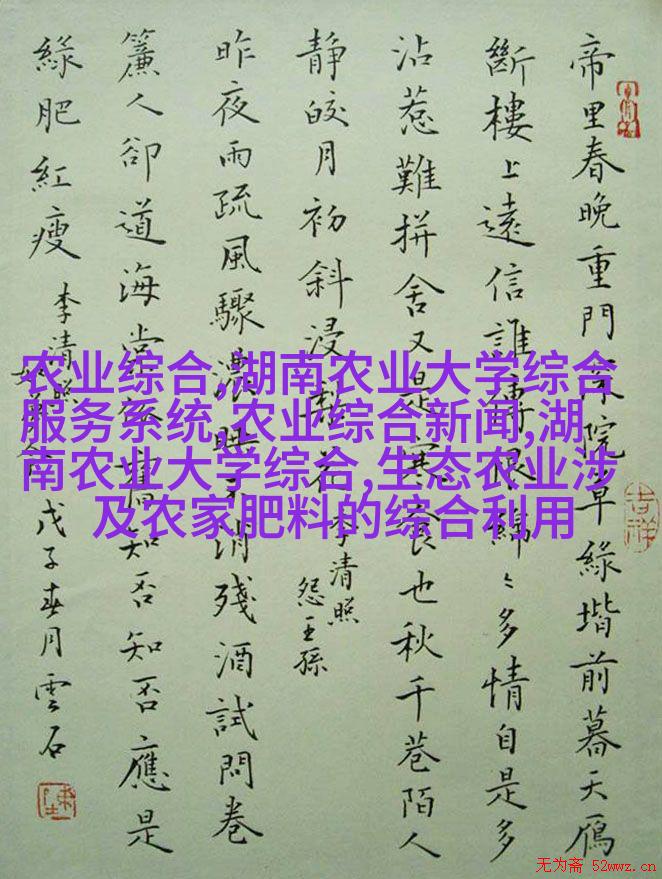 帝里春晚重門深院草綠堦前暮天鴈
斷樓上遠信誰傳恨綿〻多情自是多
沾惹難拼舍又是寒食也秋千巷陌人
靜皎月初斜浸梨花
李清照
怨王孫
昨夜雨疏風驟濃睡不消殘酒試問卷
簾人卻道海棠依舊知否知否應是
綠肥紅瘦
李清照
如夢令
戊子春月雲石
吉祥
农业综合,湖南农业大学综合
服务系统,农业综合新闻,湖
南农业大学综合,生态农业涉
及农家肥料的综合利用
无为斋 52wwz.cn